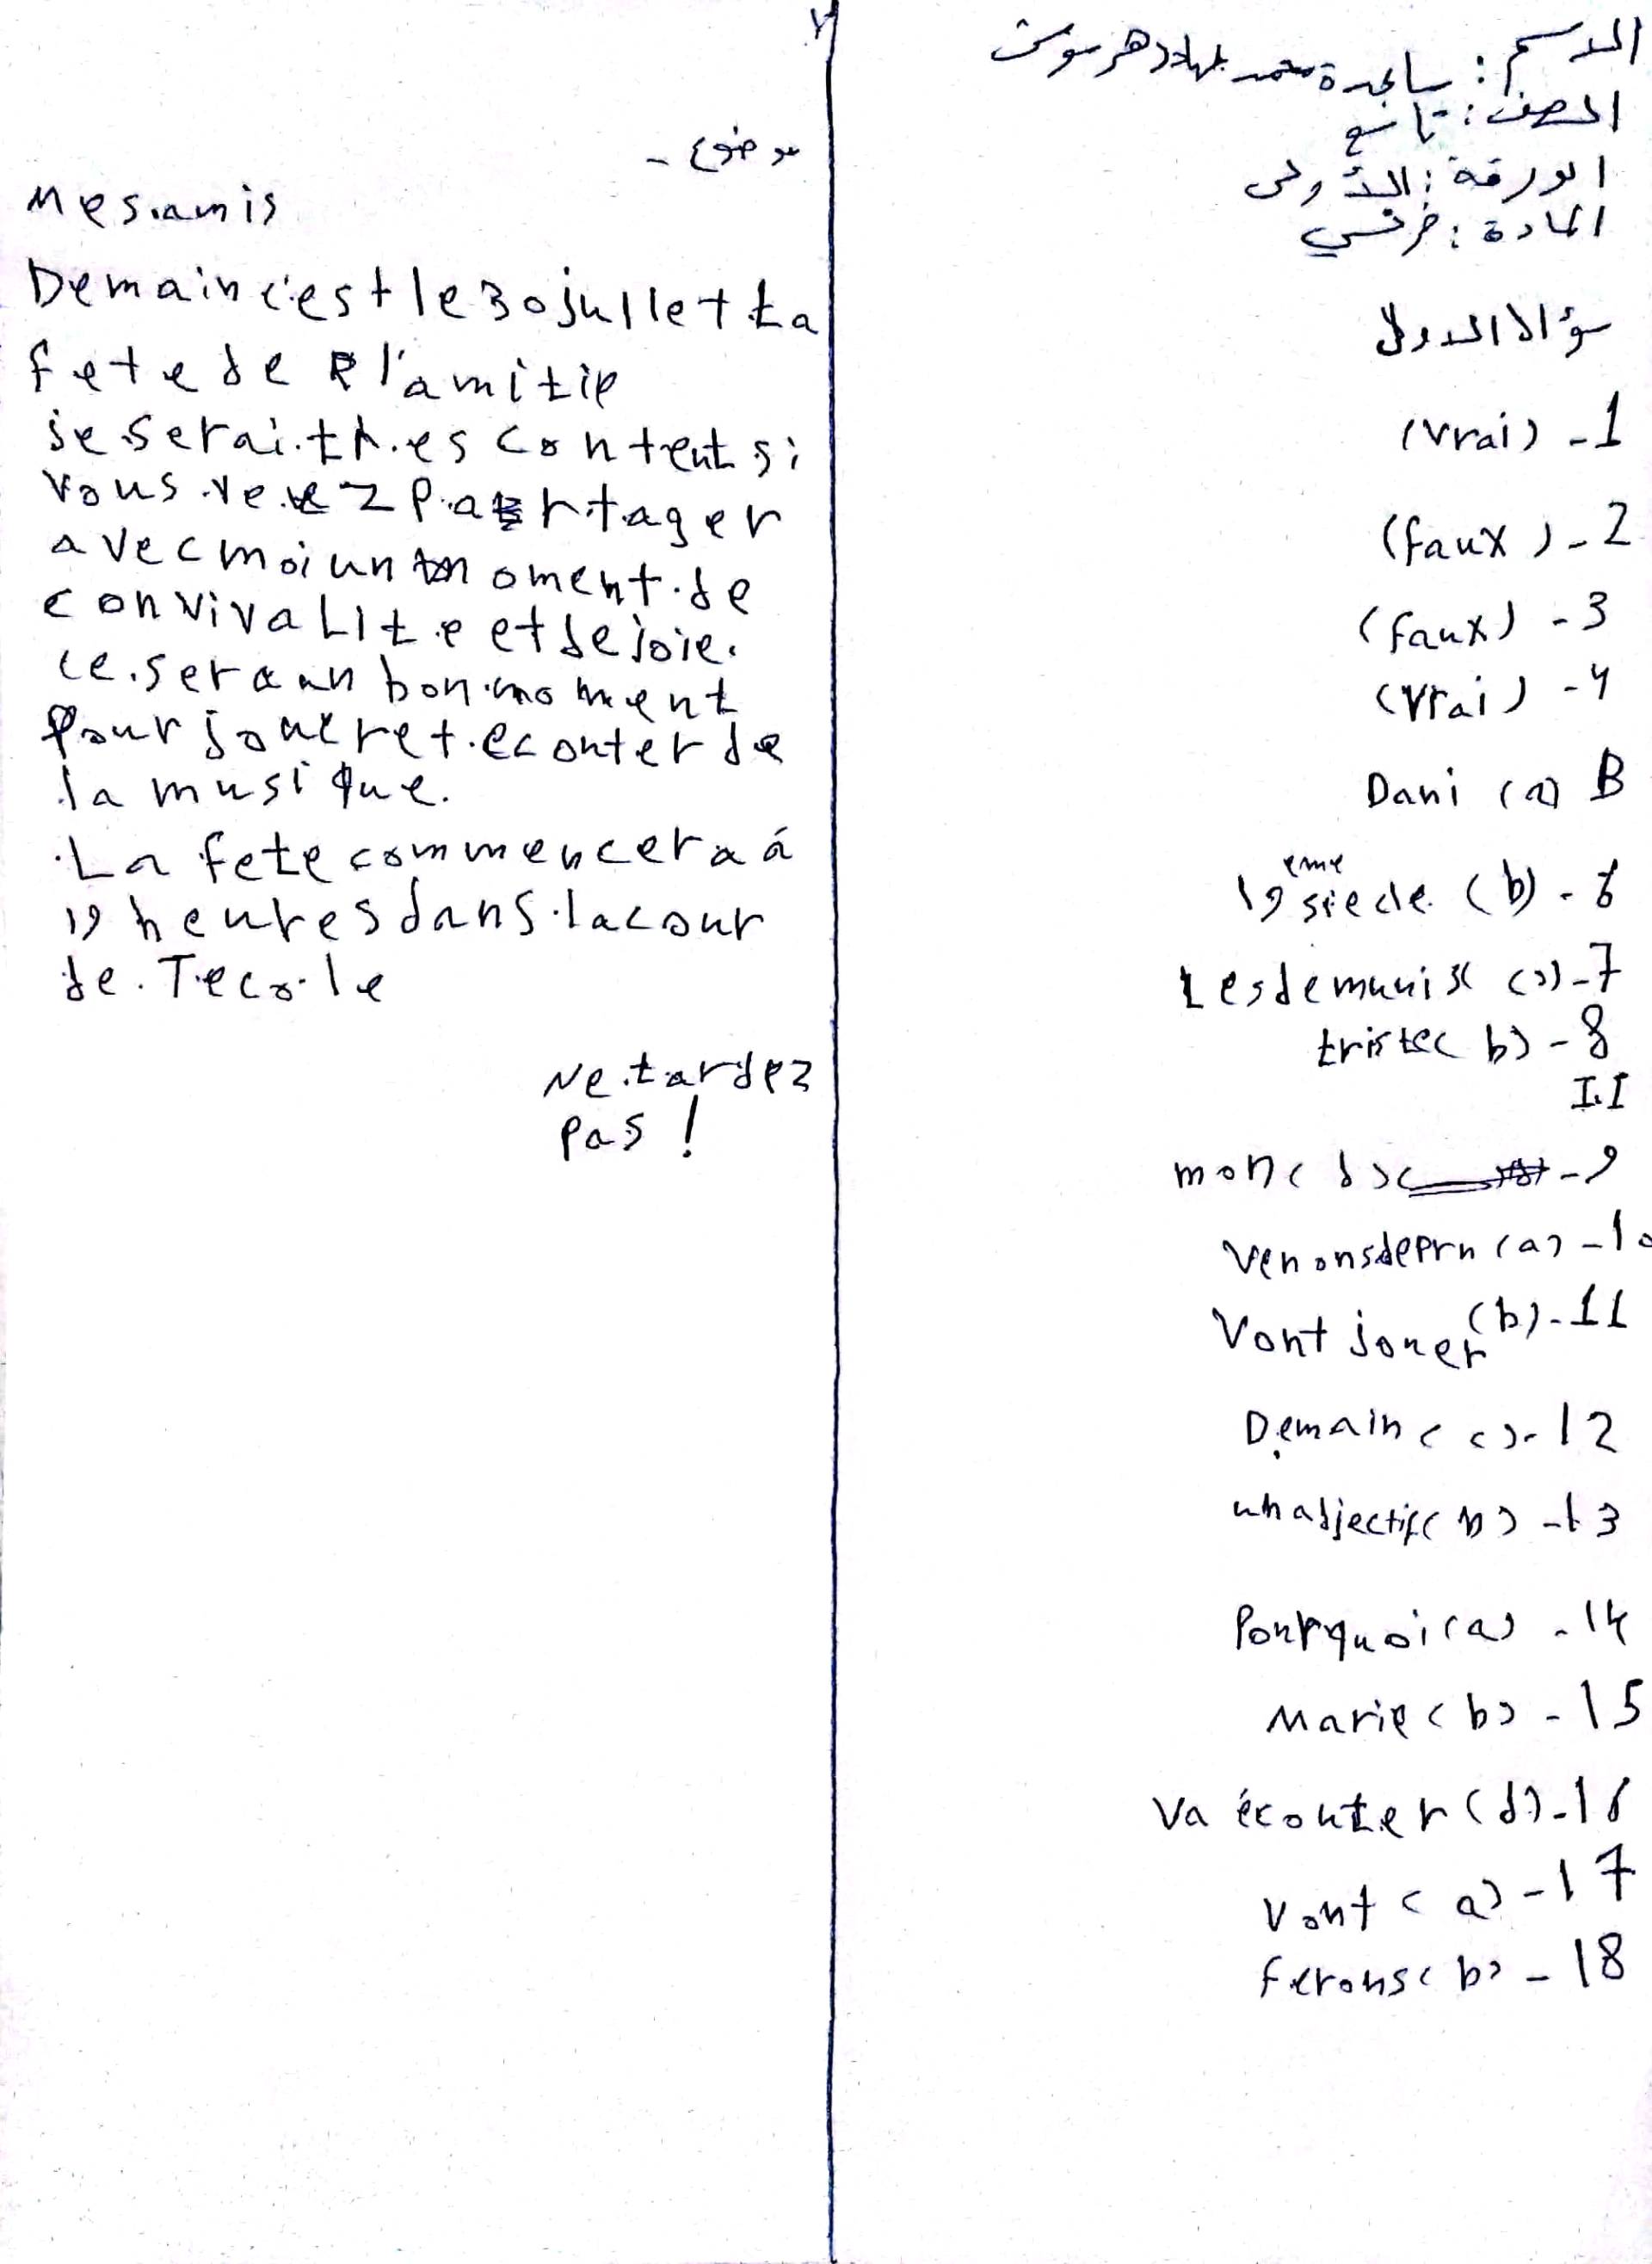 الاسم : ساجدة محمد جهاد هرموش
الصف : تاسع
الورقة : الأولى
المادة : فرنسي
سؤال الاول
(Vrai) -1
(faux) -2
(faux) -3
(Vrai) -4
Dani (a) B
19 eme siecle (b) -6
Les demunis (a) -7
triste (b) -8
I.I
mon (d) -9
Venons de prn (a) -10
Vont jouer (b) -11
Demain (c) -12
un adjectif (b) -13
Pourquoi (a) -14
Marie (b) -15
Va écouter (d) -16
Vont (a) -17
ferons (b) -18
موضوع -
Mes amis
Demain c'est le 30 jullet La
fete de l'amitie
je serai tres content si
vous venez partager
avec moi un moment de
convivaLite et de joie.
ce sera un bon moment
Pour jouer et ecouter de
la musique.
La fete commencera á
19 heures dans la cour
de Tecole
Ne tardez
pas !